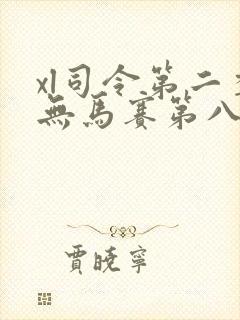 xl司令第二季
無馬賽第八
賈曉寧